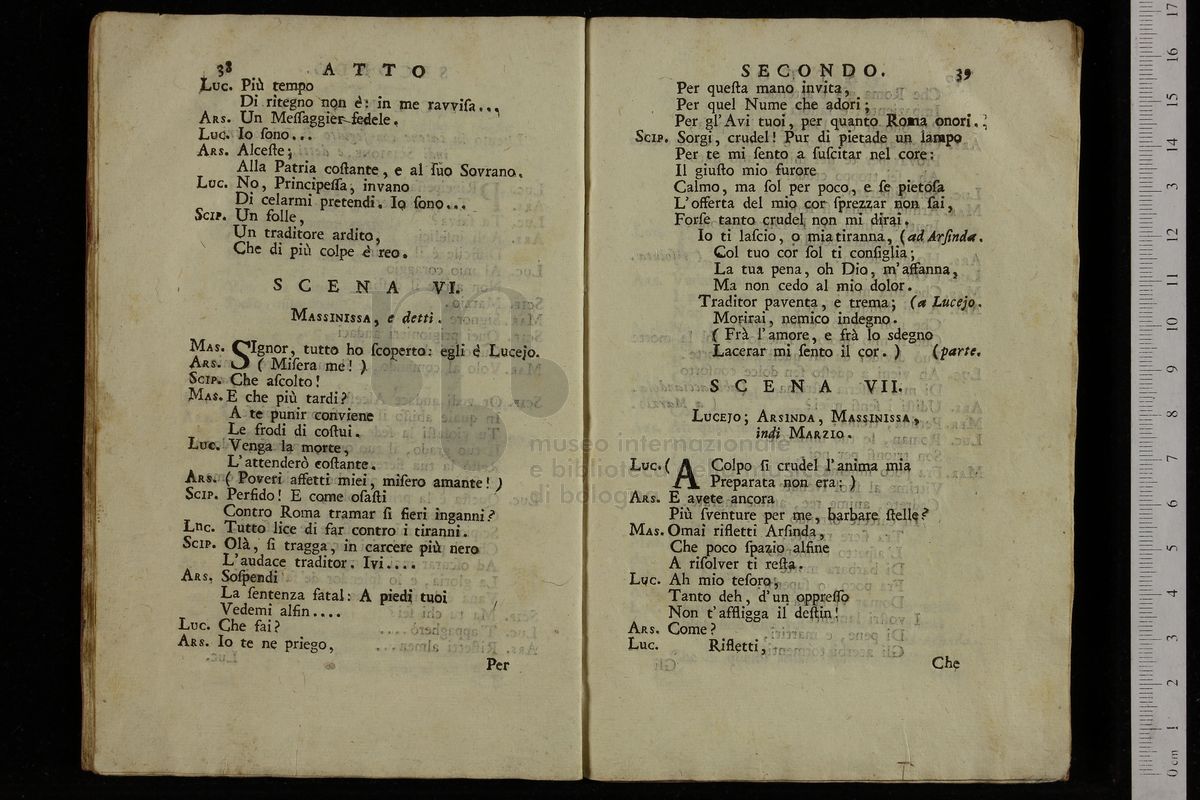 38 ATTO
Luc. Più tempo
Di ritegno non è: in me ravviſa...
Ars. Un Meſſaggier fedele.
Luc. Io ſono...
Ars. Alceſte;
Alla Patria coſtante, e al ſuo Sovrano.
Luc. No, Principeſſa, invano
Di celarmi pretendi. Io ſono...
Scip. Un folle,
Un traditore ardito,
Che di più colpe è reo.
SCENA VI.
Massinissa, e detti.
Mas. SIgnor, tutto ho ſcoperto: egli è Lucejo.
Ars. ( Miſera me! )
Scip. Che aſcolto!
Mas. E che più tardi?
A te punir conviene
Le frodi di coſtui.
Luc. Venga la morte,
L'attenderò coſtante.
Ars. ( Poveri affetti miei, miſero amante! )
Scip. Perfido! E come oſaſti
Contro Roma tramar ſi fieri inganni?
Luc. Tutto lice di far contro i tiranni.
Scip. Olà, ſi tragga, in carcere più nero
L'audace traditor. Ivi....
Ars. Soſpendi
La ſentenza fatal: A piedi tuoi
Vedemi alfin....
Luc. Che fai?
Ars. Io te ne priego,
Per
SECONDO. 39
Per queſta mano invita,
Per quel Nume che adori;
Per gl'Avi tuoi, per quanto Roma onori..
Scip. Sorgi, crudel! Pur di pietade un lampo
Per te mi ſento a ſuſcitar nel core:
Il giuſto mio furore
Calmo, ma ſol per poco, e ſe pietoſa
L'offerta del mio cor ſprezzar non ſai,
Forſe tanto crudel non mi dirai.
Io ti laſcio, o mia tiranna, (ad Arſinda.
Col tuo cor ſol ti conſiglia;
La tua pena, oh Dio, m'affanna,
Ma non cedo al mio dolor.
Traditor paventa, e trema; (a Lucejo.
Morirai, nemico indegno.
( Frà l'amore, e frà lo sdegno
Lacerar mi ſento il cor. ) (parte.
SCENA VII.
Lucejo; Arsinda, Massinissa,
indi Marzio.
Luc. ( A Colpo ſi crudel l'anima mia
Preparata non era: )
Ars. E avete ancora
Più ſventure per me, barbare ſtelle?
Mas. Omai rifletti Arſinda,
Che poco ſpazio alfine
A riſolver ti reſta.
Luc. Ah mio teſoro,
Tanto deh, d'un oppreſſo
Non t'affligga il deſtin!
Ars. Come?
Luc. Rifletti,
Che
museo internazionale
e biblioteca della musica
di bologna